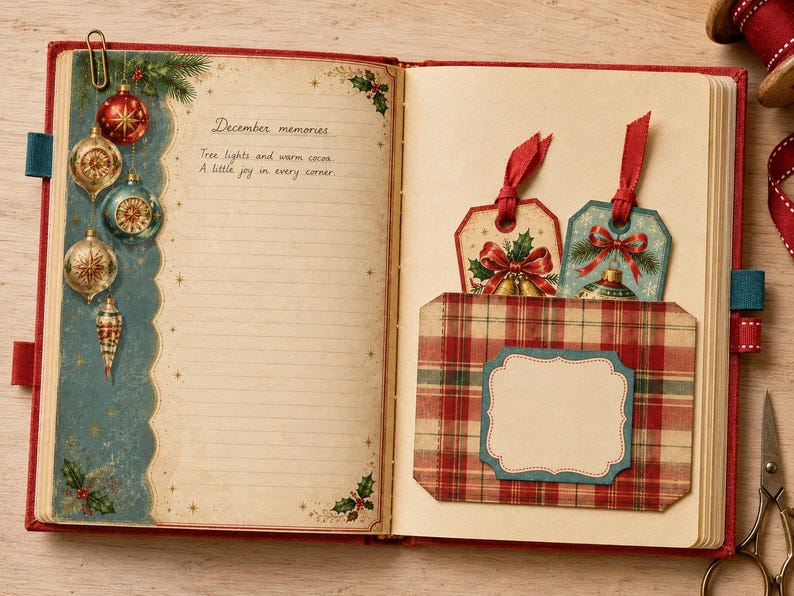 December memories
Tree lights and warm cocoa.
A little joy in every corner.